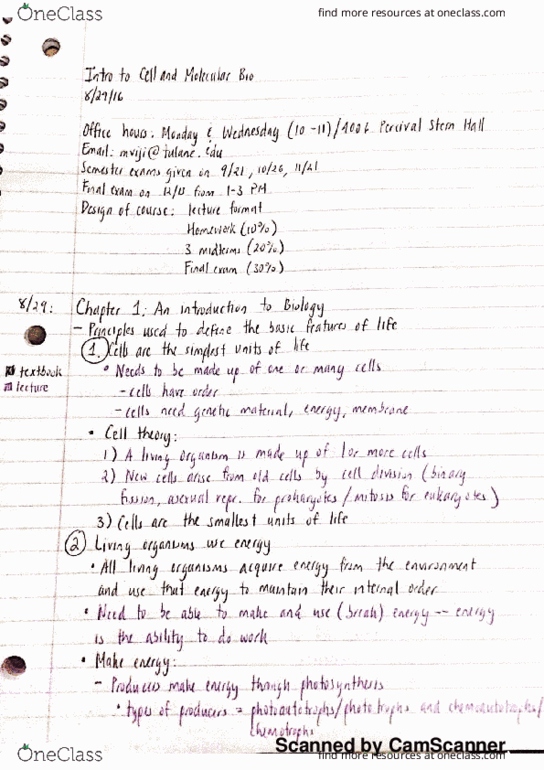 OneClass
find more resources at oneclass.com
Intro to Cell and Molecular Bio
8/29/16
Office hours: Monday & Wednesday (10-11)/4026 Percival Stern Hall
Email: mviji@tulane.edu
Semester exams given on 9/21, 10/26, 11/21
Final exam on 12/15 from 1-3 PM
Design of course: lecture format
Homework (10%)
3 midterms (20%)
Final exam (30%)
8/29: Chapter 1: An introduction to Biology
- Principles used to define the basic features of life
1. Cells are the simplest units of life
• Needs to be made up of one or many cells
textbook
lecture
- cells have order
- cells need genetic material, energy, membrane
• Cell theory:
1) A living organism is made up of 1 or more cells
2) New cells arise from old cells by cell division (binary
fission, asexual repr. for prokaryotes / mitosis for eukaryotes)
3) Cells are the smallest units of life
2 Living organisms use energy
• All living organisms acquire energy from the environment
and use that energy to maintain their internal order
• Need to be able to make and use (break) energy -- energy
is the ability to do work
• Make energy:
- Producers make energy through photosynthesis
• types of producers = photoautotrophs/phototrophs and chemoautotrophs/
chemotrophs
Scanned by CamScanner
OneClass
find more resources at oneclass.com